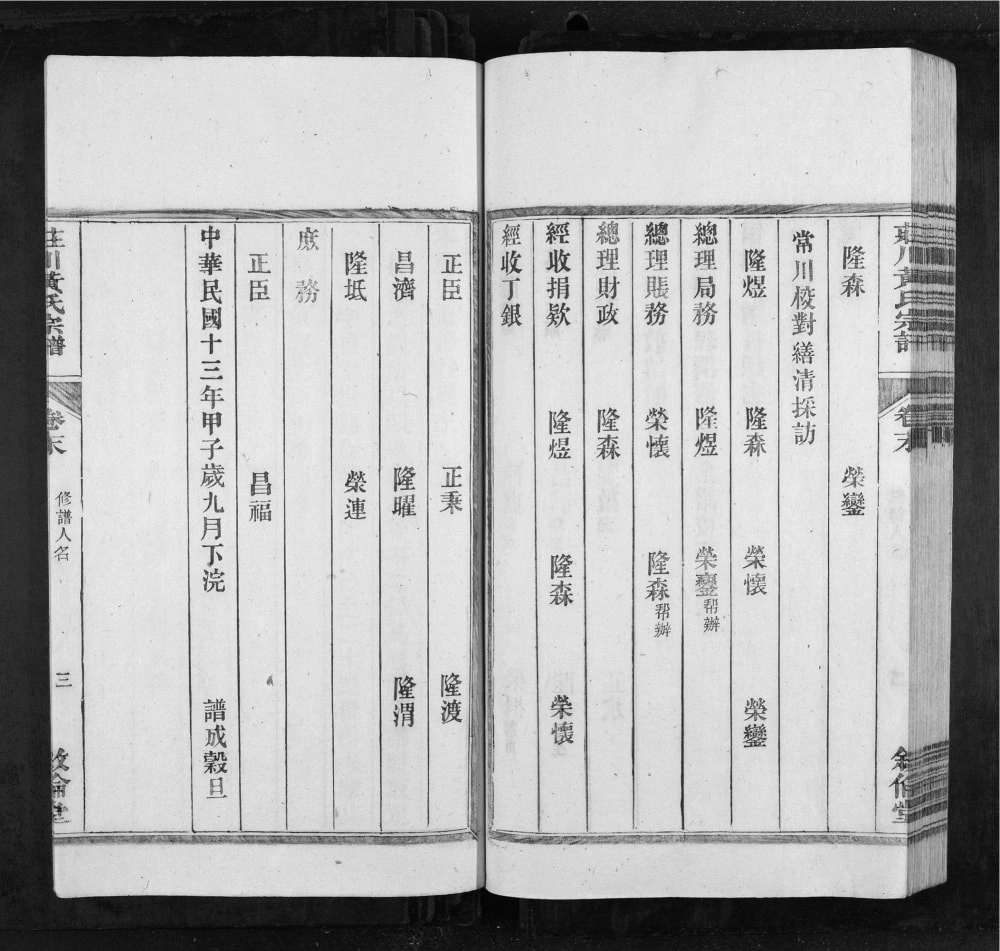 隆森 榮鑾
常川校對繕清採訪
隆煜 隆森 榮懷 榮鑾
總理局務 隆煜 榮鑾帮辦
總理賬務 榮懷 隆森帮辦
總理財政 隆森
經收捐欵 隆煜 隆森 榮懷
經收丁銀
正臣 正秉 隆渡
昌濟 隆曜 隆渭
隆坻 榮連
庶務
正臣 昌福
中華民國十三年甲子歲九月下浣 譜成穀旦
川黃氏宗譜 卷末 修譜人名 三 敘倫堂